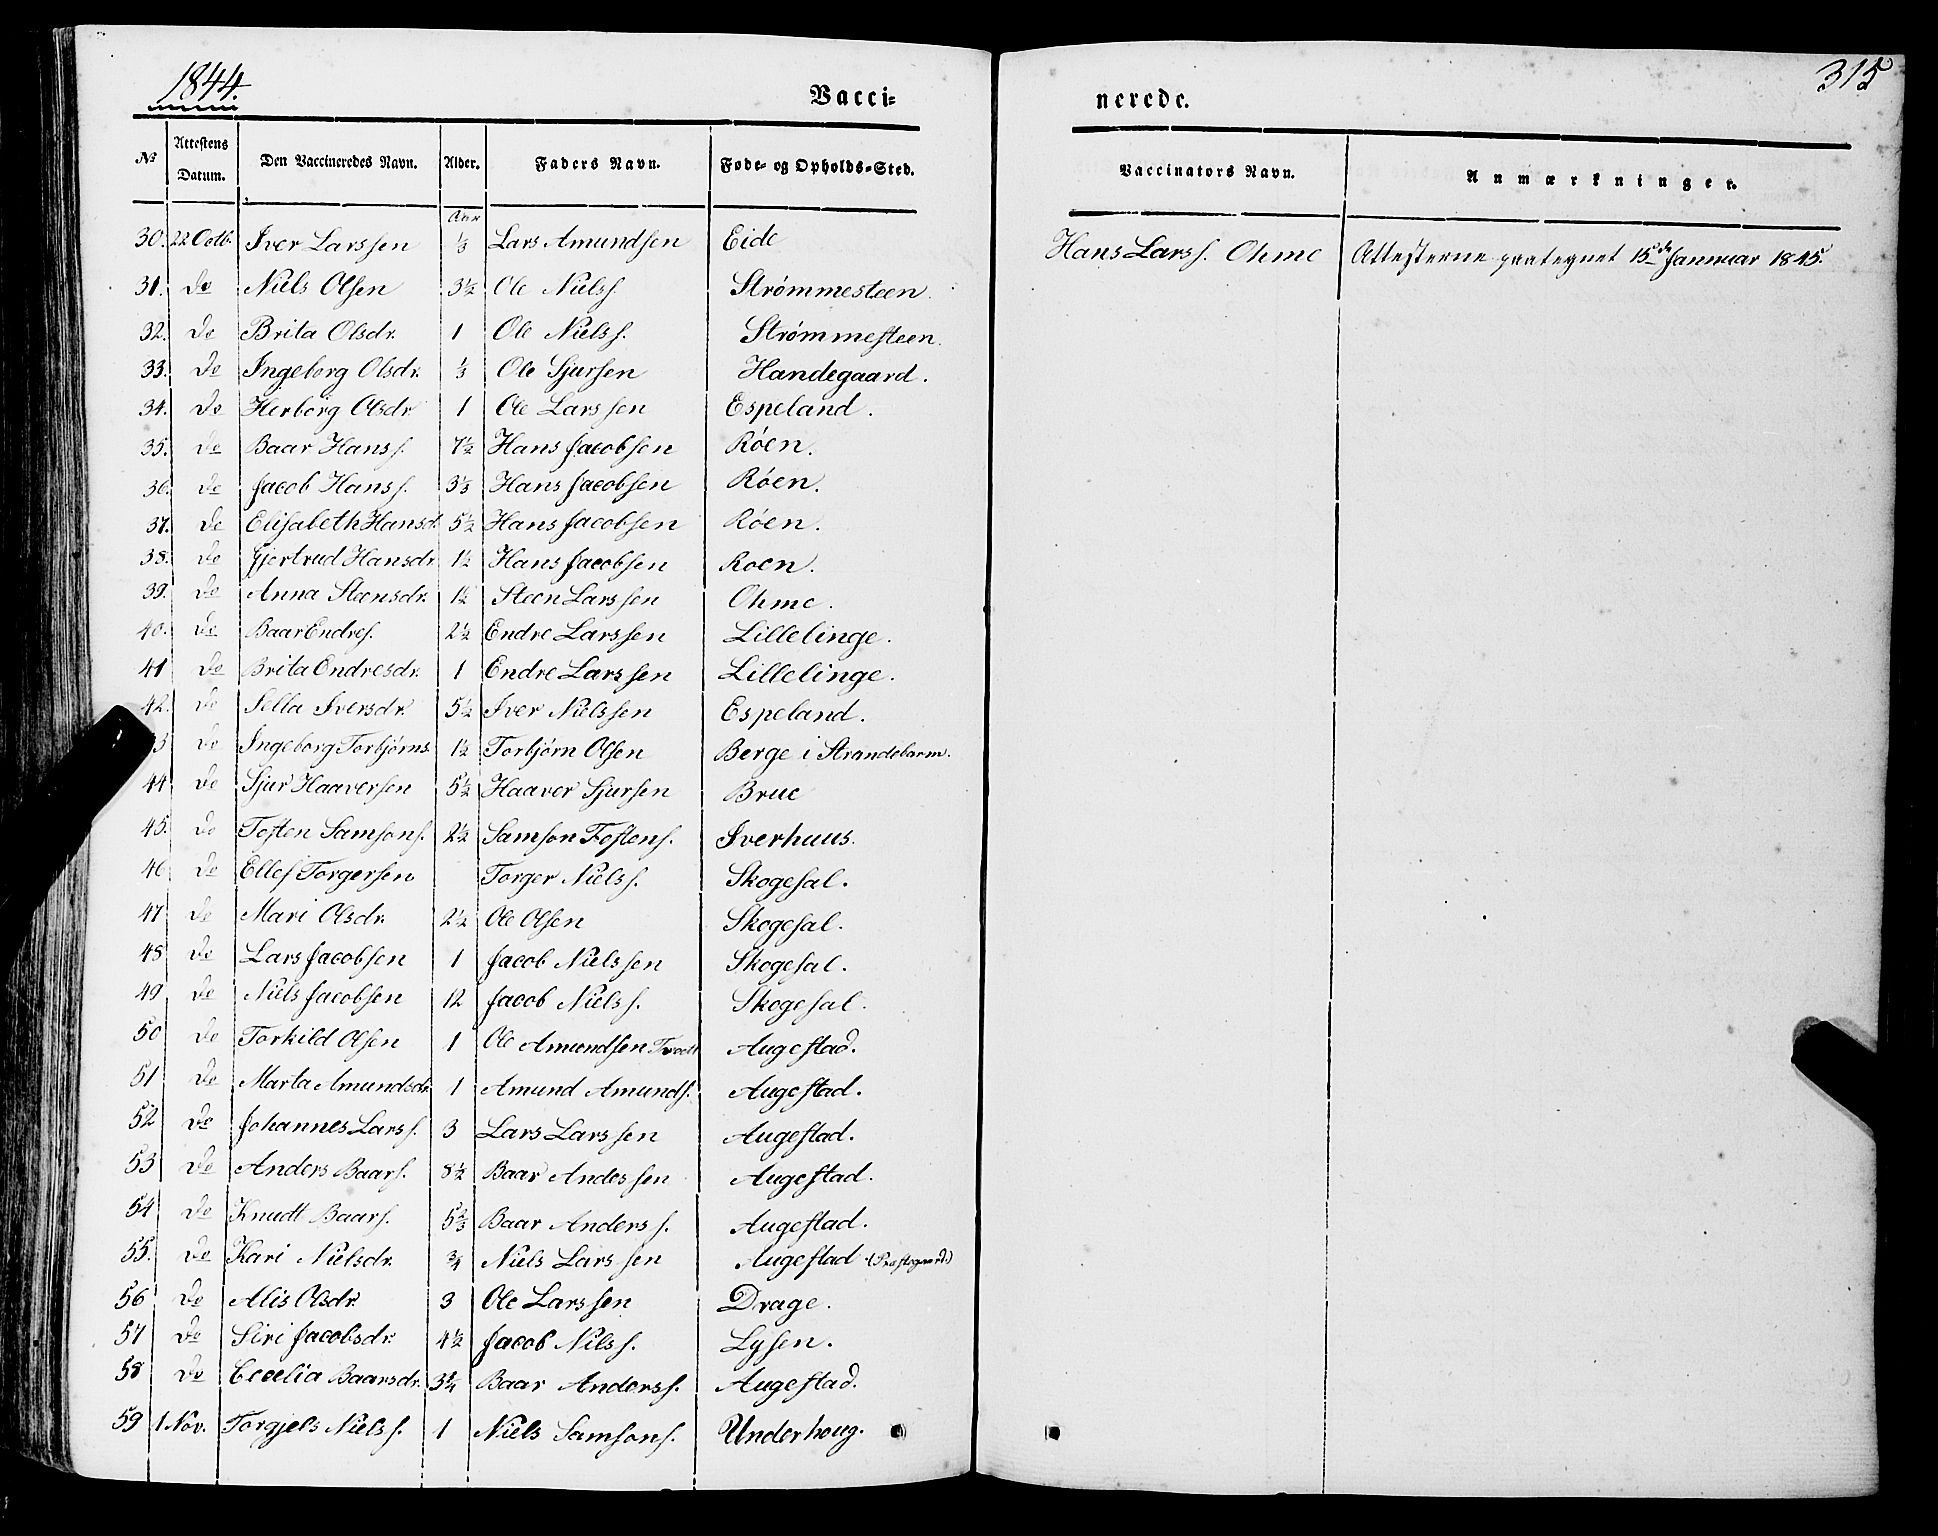 1844.
Vacci=
nerede.
315
No
Attestens Datum.
Den Vaccineredes Navn.
Alder.
Faders Navn.
Føde- og Opholds-Sted.
Vaccinators Navn.
Anmærkninger.
Aar
30. 22 Octb. Iver Larssen ⅓ Lars Amundsen Eide Hans Larss. Ohme Attesterne paategnet 15de Januar 1845.
31. do Niels Olsen 3½ Ole Nielss. Strømmesteen.
32. do Brita Olsdr. 1 Ole Nielss. Strømmesteen.
33. do Ingeborg Olsdr. ⅓ Ole Sjursen Handegaard.
34. do Herborg Olsdr 1 Ole Larssen Espeland.
35. do Baar Hanss. 7½ Hans Jacobsen Röen.
36. do Jacob Hanss. 3⅓ Hans Jacobsen Röen.
37. do Elisabeth Hansd. 5½ Hans Jacobsen Röen.
38. do Gjertrud Hansdr. 1½ Hans Jacobsen Roen.
39. do Anna Steensdr. 1½ Steen Larssen Ohme.
40. do Baar Endres. 2½ Endre Larssen Lillelinge.
41 do Brita Endresdr. 1 Endre Larssen Lillelinge.
42. do Sella Iversdr. 5½ Iver Nielssen Espeland.
3 do Ingeborg Torbjørns. 1½ Torbjørn Olsen Berge i Strandebarm.
44 do Sjur Haaversen 5½ Haaver Sjursen Brue
45. do Tosten Samsons. 2½ Samson Tostens. Iverhuus.
46 do Ellef Torgersen Torger Nielss. Skogesal.
47 do Mari Olsdr. 2½ Ole Olsen Skogesal.
48 do Lars Jacobsen 1 Jacob Nielssen Skogesal.
49 do Niels Jacobsen 12 Jacob Nielss. Skogesal.
50 do Torkild Olsen 1 Ole Amundsen Augestad.
51 do Marta Amundsdr. 1 Amund Amunds. Augestad.
52 do Johannes Larss. 3 Lars Larssen Augestad.
53 do Anders Baars. 8½ Baar Andessen Augestad.
54 do Knudt Baars. 5⅔ Baar Anderss. Augestad.
55. do Kari Nielsdr. ¾ Niels Larssen Augestad (Præstegaard.)
56 do Alis Olsdr. 3 Ole Larssen Drage.
57 do Siri Jacobsdr. 4½ Jacob Nilss. Lysen.
58 do Cecelia Baarsdr. 3¾ Baar Anderss. Augestad.
59 1 Nov. Torgjels Nielss. 1 Niels Samsons. Underhoug.